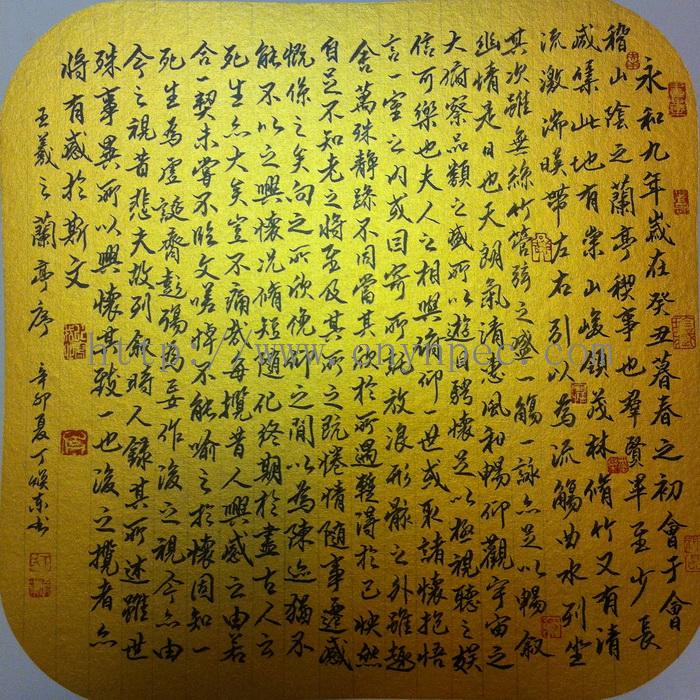 永和九年歲在癸丑暮春之初會于會
稽山陰之蘭亭稧事也羣賢畢至少長
咸集此地有崇山峻領茂林脩竹又有清
流激湍暎帶左右引以為流觴曲水列坐
其次雖無絲竹管弦之盛一觴一詠亦足以暢敘
幽情是日也天朗氣清惠風和暢仰觀宇宙之
大俯察品類之盛所以遊目騁懷足以極視聽之娛
信可樂也夫人之相與俯仰一世或取諸懷抱悟
言一室之內或因寄所託放浪形骸之外雖趣
舍萬殊靜躁不同當其欣於所遇暫得於己怏然
自足不知老之將至及其所之既惓情隨事遷感
慨係之矣向之所欣俛仰之間以為陳迹猶不
能不以之興懷況脩短隨化終期於盡古人云
死生亦大矣豈不痛哉每攬昔人興感之由若
合一契未嘗不臨文嗟悼不能喻之於懷固知一
死生為虛誕齊彭殤為妄作後之視今亦由
今之視昔悲夫故列敘時人錄其所述雖世
殊事異所以興懷其致一也後之攬者亦
將有感於斯文
王羲之蘭亭序 辛卯夏丁煥東書
http://www.cnyhpec.com